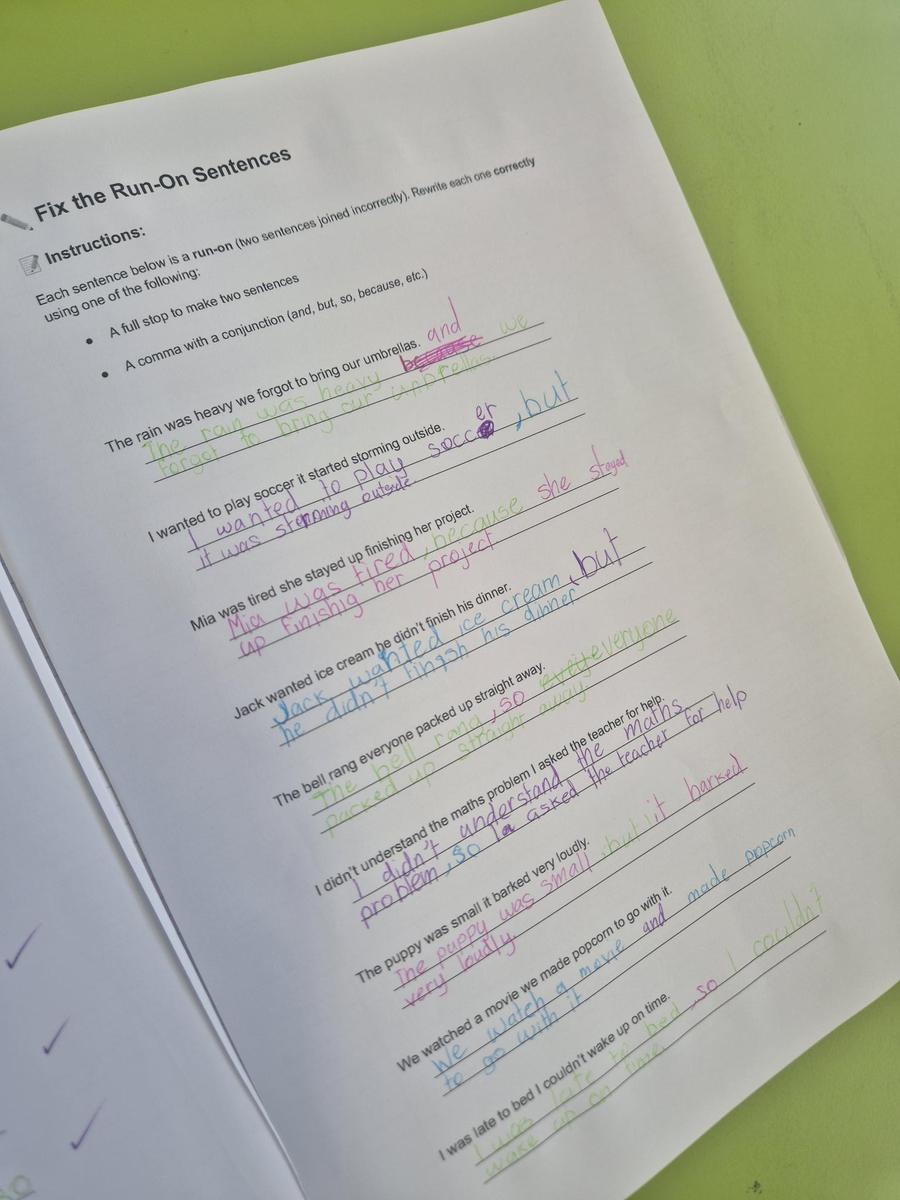 Fix the Run-On Sentences
Instructions:
Each sentence below is a run-on (two sentences joined incorrectly). Rewrite each one correctly
using one of the following:
• A full stop to make two sentences
• A comma with a conjunction (and, but, so, because, etc.)
The rain was heavy we forgot to bring our umbrellas.
The rain was heavy and we
forgot to bring our umbrellas.
I wanted to play soccer it started storming outside.
I wanted to play soccer ,but
it was storming outside
Mia was tired she stayed up finishing her project.
Mia was tired ,because she stayed
up finishig her project
Jack wanted ice cream he didn't finish his dinner.
Jack wanted ice cream ,but
he didn't finish his dinner
The bell rang everyone packed up straight away.
The bell rang ,so everyone
packed up straight away
I didn't understand the maths problem I asked the teacher for help.
I didn't understand the maths
problem ,so I asked the teacher for help
The puppy was small it barked very loudly.
The puppy was small ,but it barked
very loudly
We watched a movie we made popcorn to go with it.
We watch a movie and made popcorn
to go with it
I was late to bed I couldn't wake up on time.
I was late to bed ,so I couldn't
wake up on time